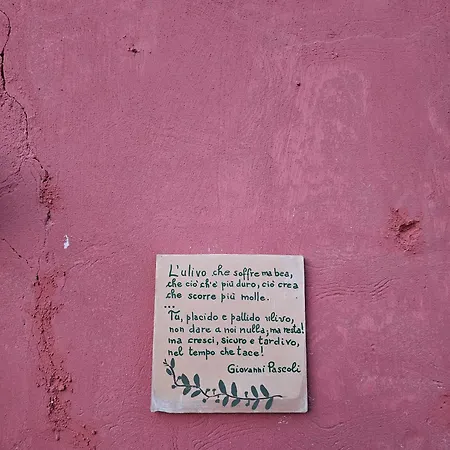 L'ulivo che soffre ma bea,
che ciò ch'è più duro, ciò crea
che scorre più molle.
...
Tu, placido e pallido ulivo,
non dare a noi nulla; ma resta!
ma cresci, sicuro e tardivo,
nel tempo che tace!
Giovanni Pascoli